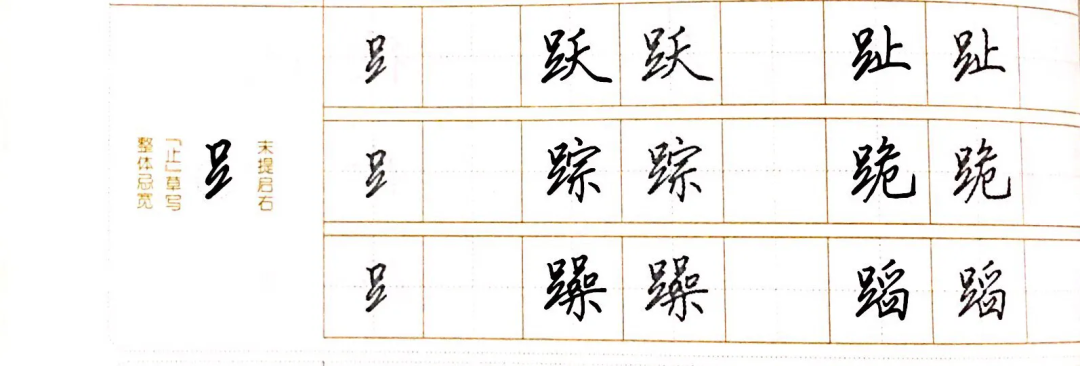 末提启右
⻊
「止」草写
整体忌宽
⻊ 跃 跃 趾 趾
⻊ 踪 踪 跪 跪
⻊ 躁 躁 蹈 蹈